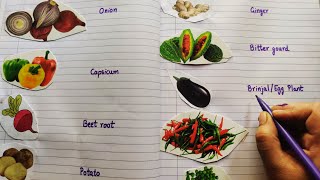 Onion
Capsicum
Beet root
Potato
Ginger
Bitter gourd
Brinjal/Egg Plant